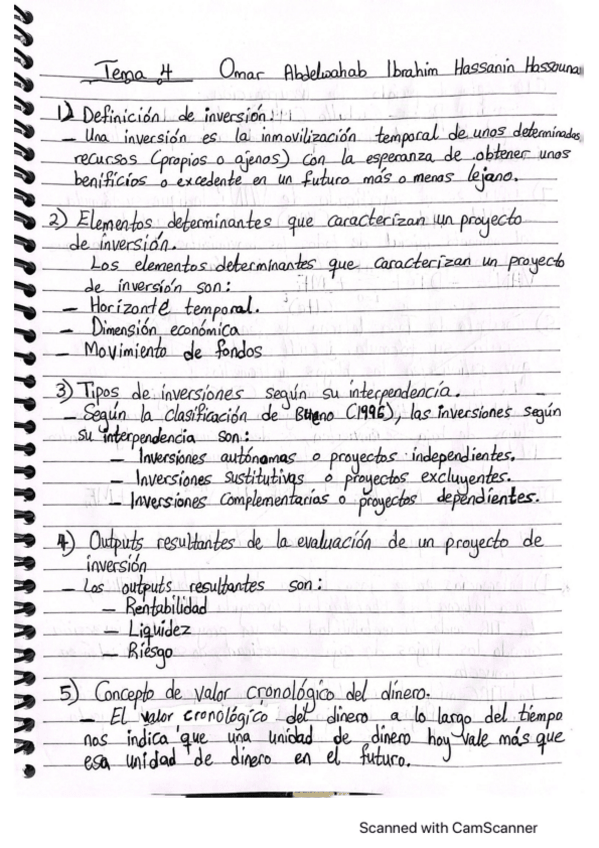 Tema 4 Omar Abdelwahab Ibrahim Hassanin Hassouna
1) Definición de inversión:
- Una inversión es la inmovilización temporal de unos determinados
recursos (propios o ajenos) con la esperanza de obtener unos
benificios o excedente en un futuro más o menas lejano.
2) Elementos determinantes que caracterizan un proyecto
de inversión.
Los elementos determinantes que caracterizan un proyecto
de inversión son:
- Horizonte temporal.
- Dimensión económica
- Movimiento de fondos
3) Tipos de inversiones según su interpendencia.
- Según la clasificación de Bueno (1996), las inversiones según
su interpendencia son:
- Inversiones autónomas o proyectos independientes.
- Inversiones sustitutivas o proyectos excluyentes.
- Inversiones complementarias o proyectos dependientes.
4) Outputs resultantes de la evaluación de un proyecto de
inversión
- Los outputs resultantes son:
- Rentabilidad
- Liquidez
- Riesgo
5) Concepto de valor cronológico del dinero.
- El valor cronológico del dinero a lo largo del tiempo
nos indica que una unidad de dinero hoy vale más que
esa unidad de dinero en el futuro.
Scanned with CamScanner